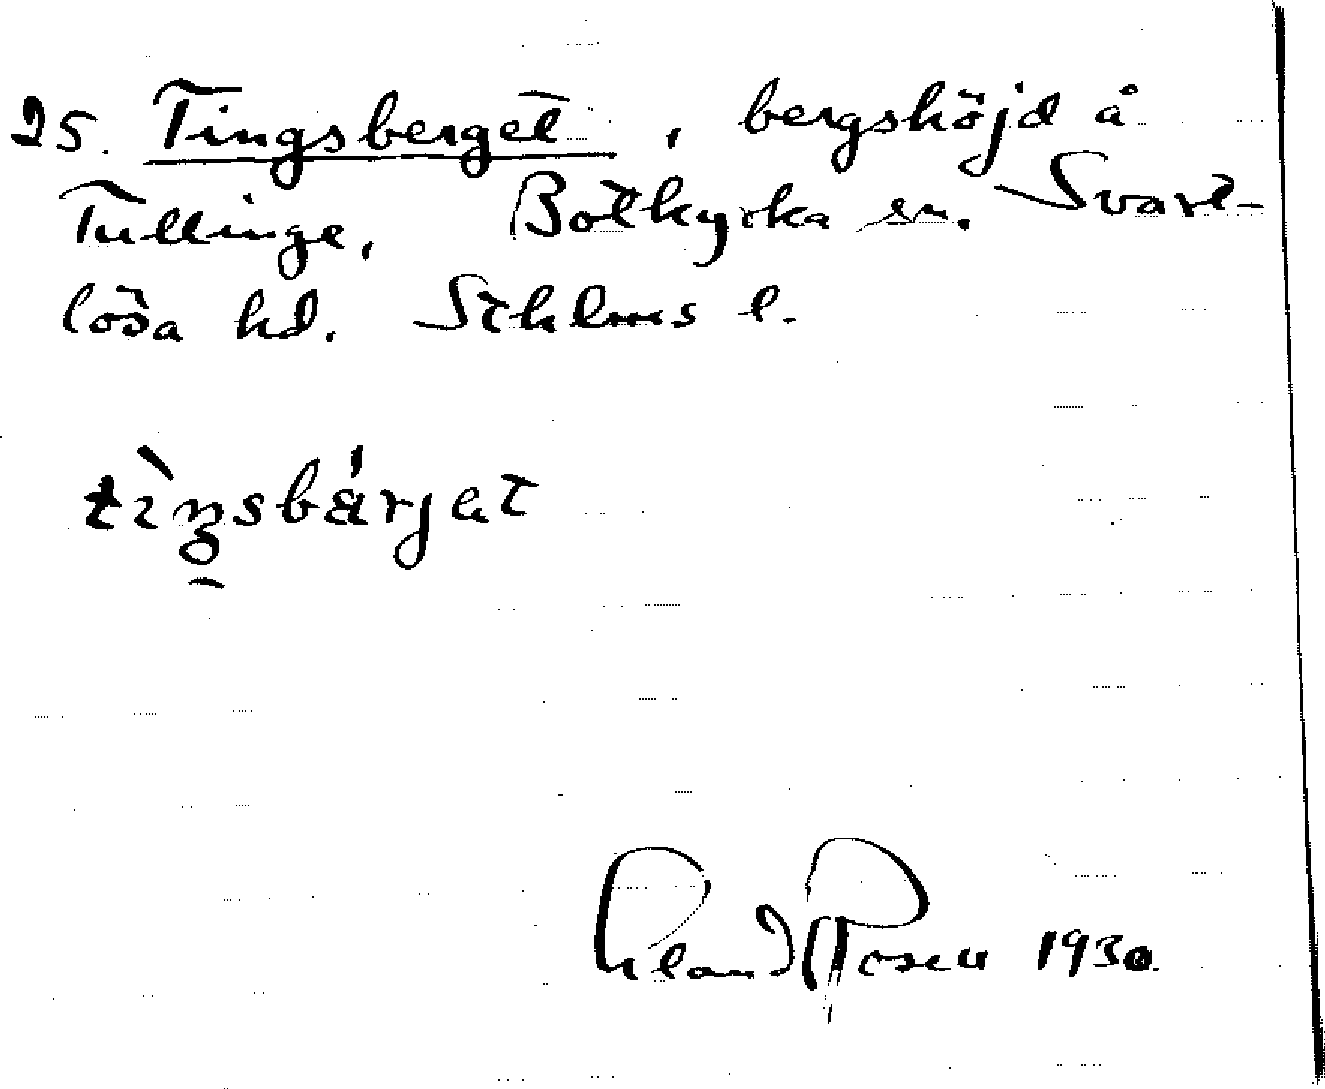 25. Tingsberget, bergshöjd å
Tullinge, Botkyrka sn. Svart-
lösa hd. Sthlms l.
tìŋsbárjat
Rosen 1930.